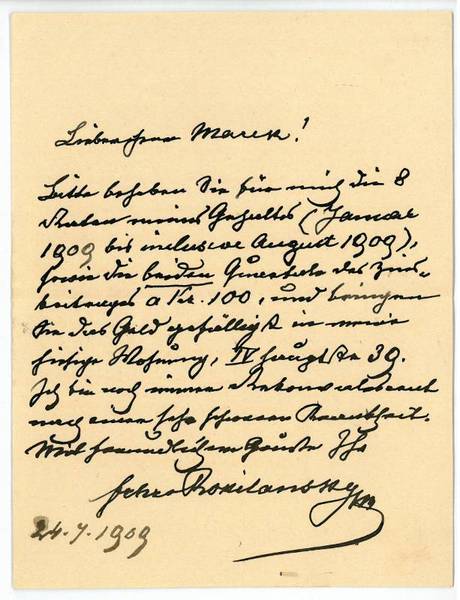 Lieber Herr Marek!
Bitte beheben Sie für mich die 8
Raten meines Gehaltes (Januar
1909 bis inclusive August 1909),
sowie die beiden Quartale des Zins-
beitrages a Kr. 100, und bringen
Sie das Geld gefälligst in meine
hiesige Wohnung, IV haupt 39.
Ich bin noch immer Rekonvalescent
nach einer sehr schweren Krankheit.
Mit freundlichem Gruße Ihr
Rokitansky
24.7.1909